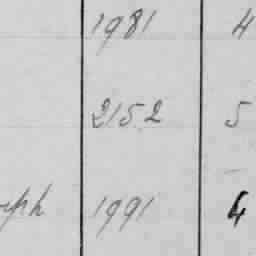 1981 4
2152 5
1991 4